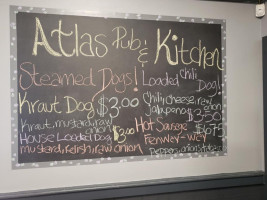 Atlas Pub & Kitchen
Steamed Dogs!
Kraut Dog $3.00
Kraut, mustard, raw onion
House Loaded Dog $3.00
mustard, relish, raw onion
Loaded Chili Dog!
Chili, cheese, raw
jalapeno, onion
$3.50
Hot Sausage $6.75
Fenway-Way
Peppers, onions